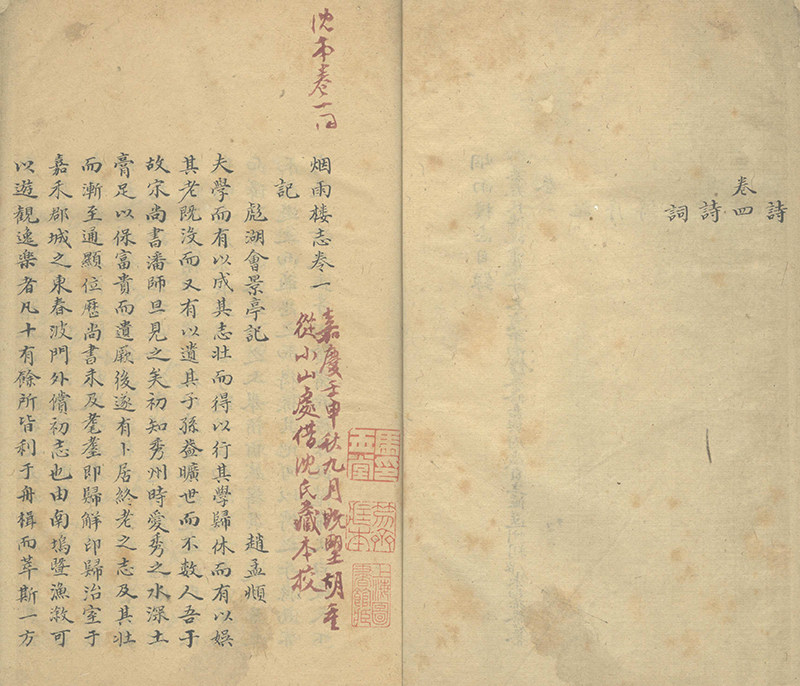 詩
卷四
詩
詞
沈本卷一同
烟雨楼志卷一
嘉慶壬申秋九月既朢胡重
從小山處借沈氏藏本校
記
彪湖會景亭記　趙孟頫
夫學而有以成其志壯而得以行其學歸休而有以娯
其老既沒而又有以遺其子孫葢曠世而不數人吾于
故宋尚書潘師旦見之矣初知秀州時愛秀之水深土
膏足以保富貴而遺厥後遂有卜居終老之志及其壯
而漸至通顯位歷尚書未及耄耋即歸解印歸治室于
嘉禾郡城之東春波門外償初志也由南塢暨漁漵可
以遊觀逸樂者凡十有餘所皆利于舟楫而萃斯一方